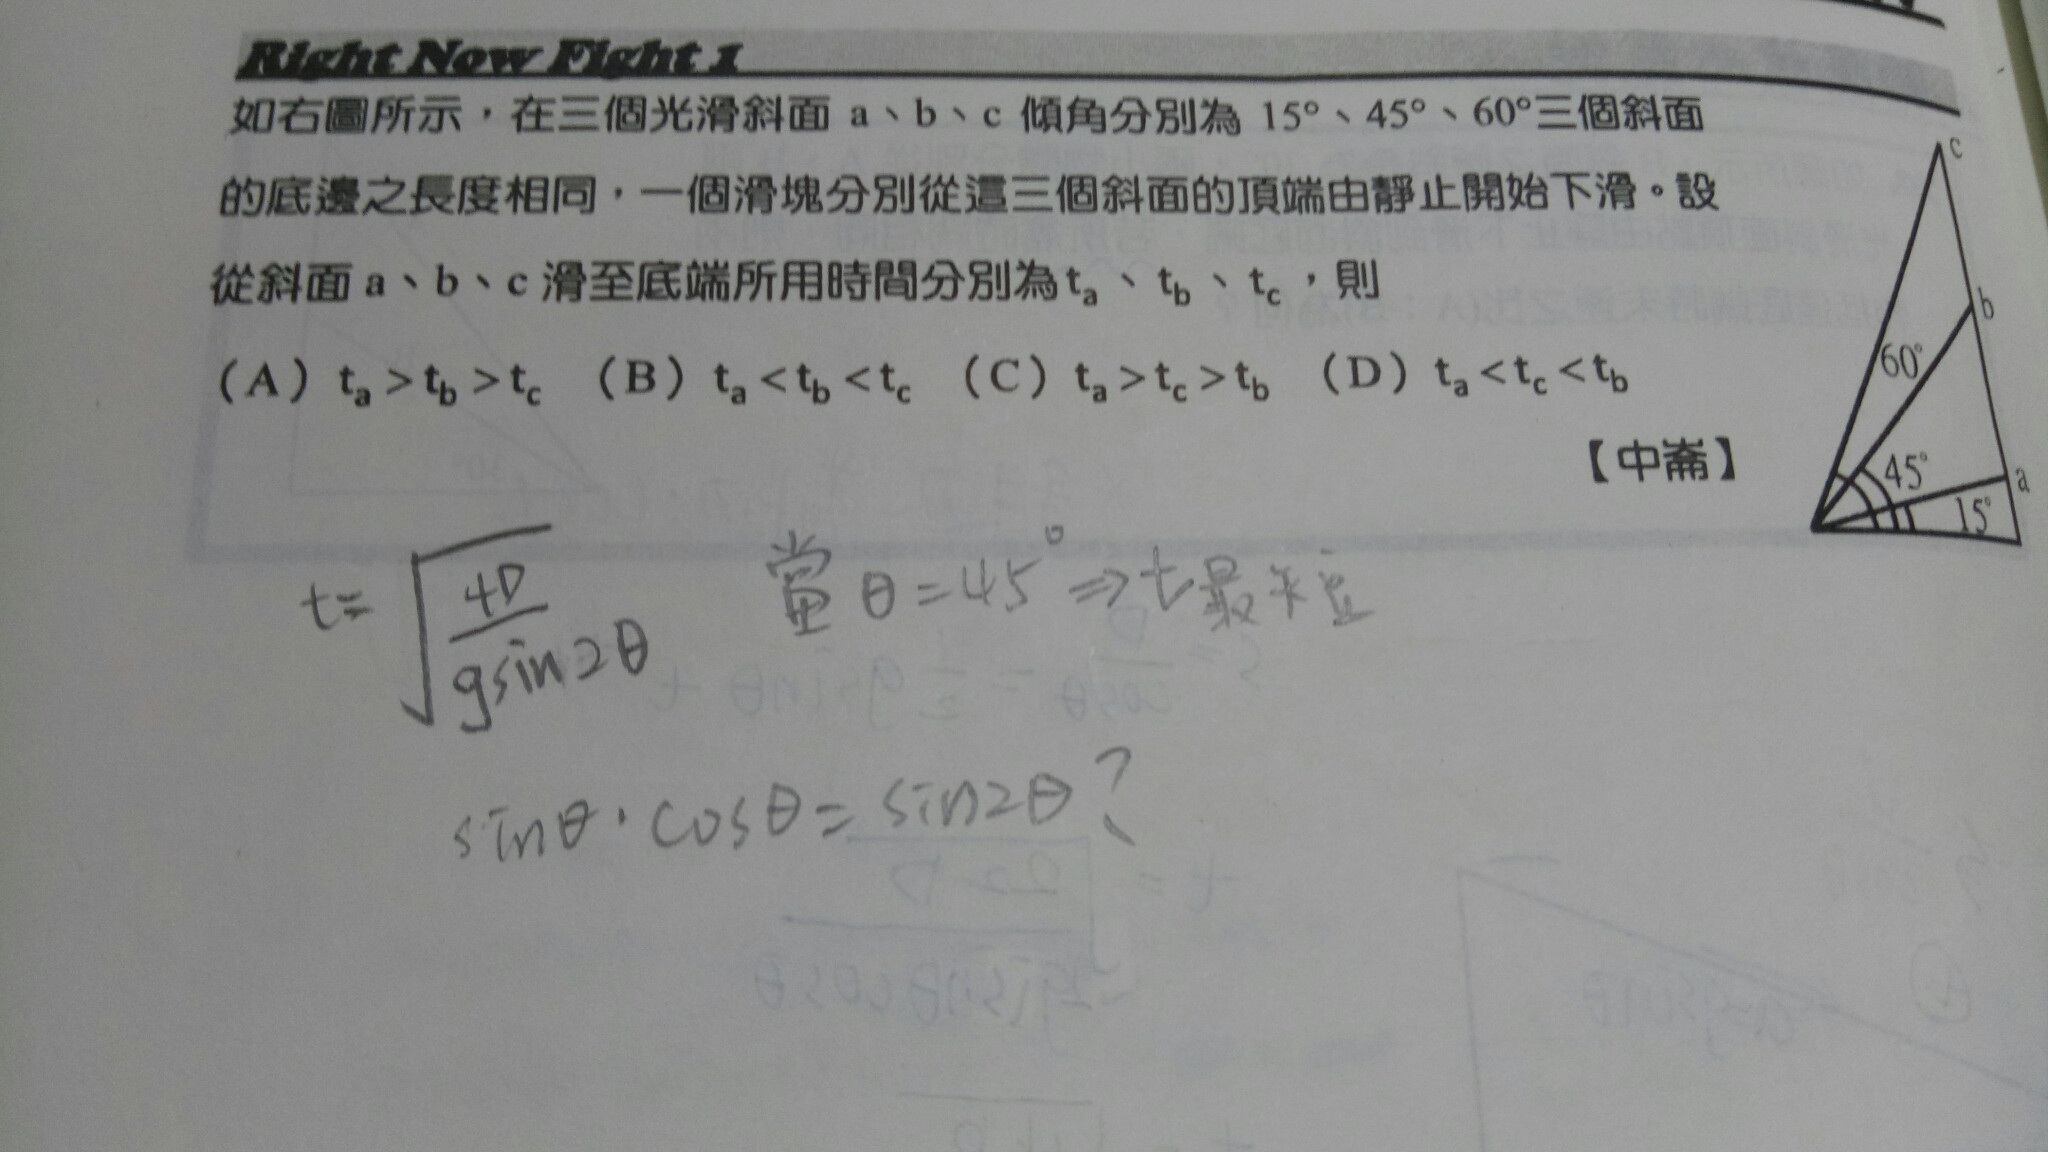 Right Now Fight 1
如右圖所示，在三個光滑斜面 a、b、c 傾角分別為 15°、45°、60°三個斜面
的底邊之長度相同，一個滑塊分別從這三個斜面的頂端由靜止開始下滑。設
從斜面 a、b、c 滑至底端所用時間分別為 tₐ、t_b、t_c，則
（A）tₐ>t_b>t_c （B）tₐ<t_b<t_c （C）tₐ>t_c>t_b （D）tₐ<t_c<t_b
【中崙】
c
b
60°
45°
a
15°
t=√(4D/gsin2θ) 當θ=45°⇒t最短
sinθ·cosθ=sin2θ?